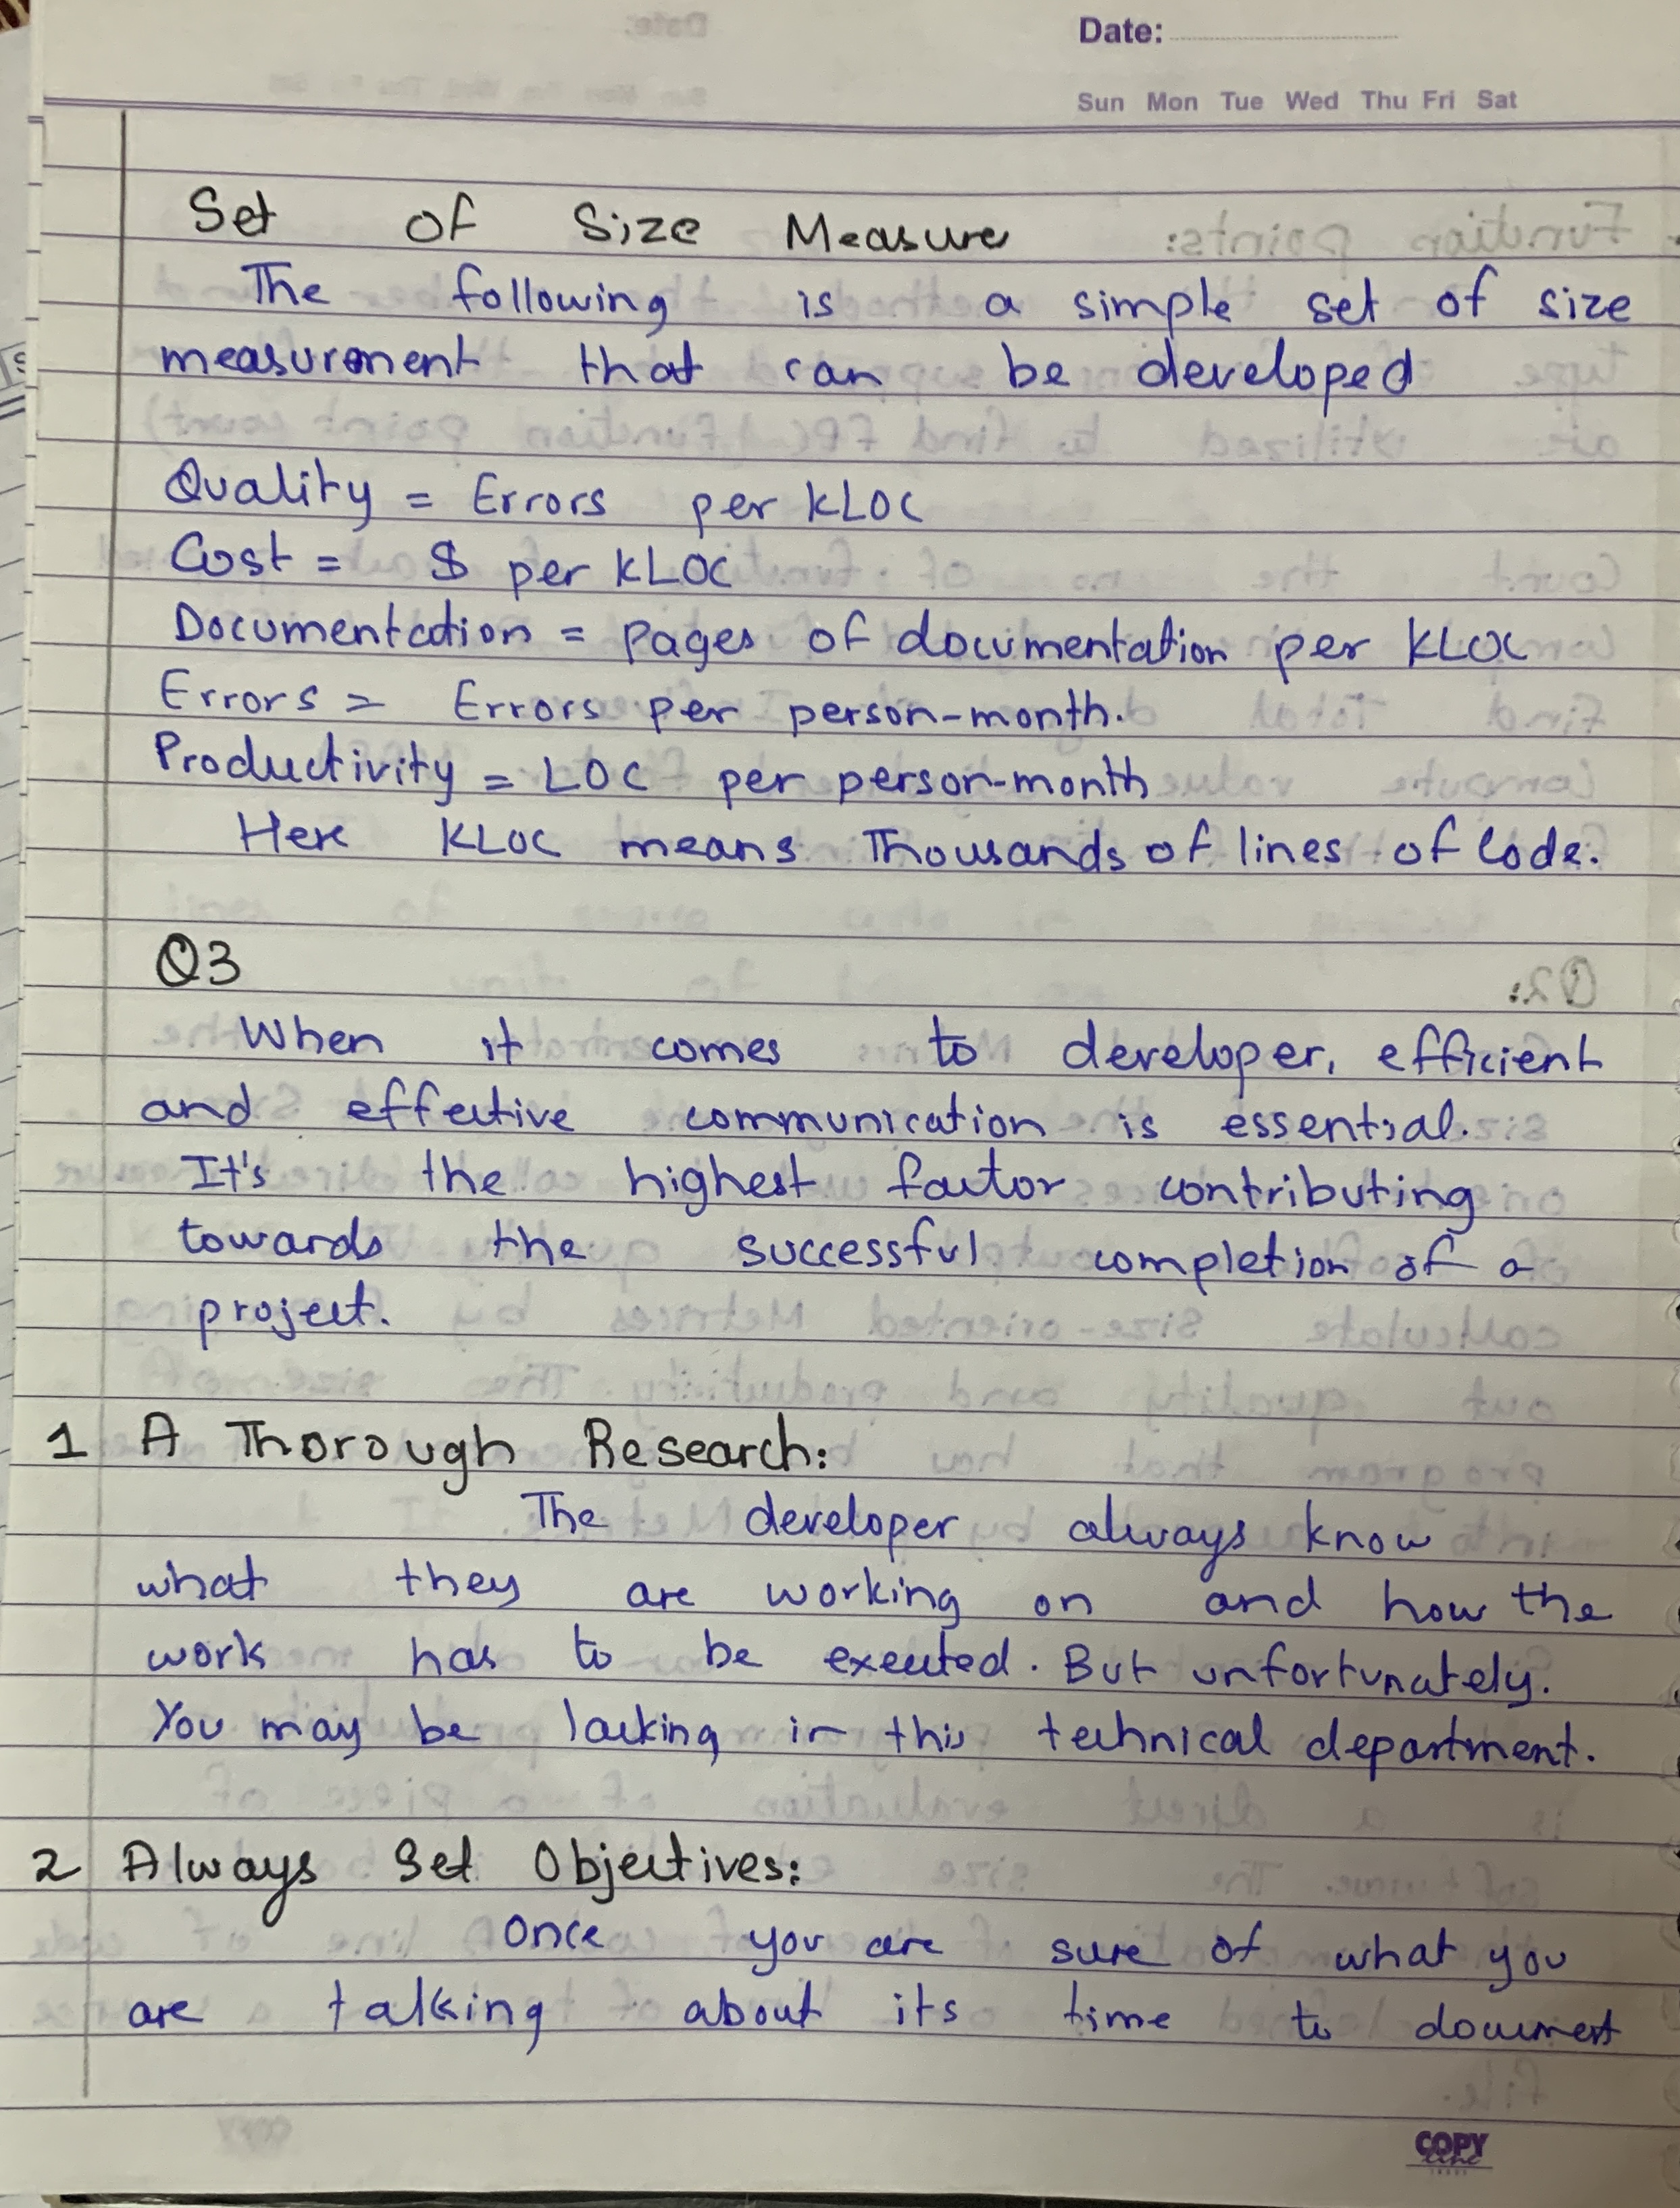 Date:
Sun Mon Tue Wed Thu Fri Sat
Set of Size Measure
The following is a simple set of size
measurement that can be developed
Quality = Errors per KLOC
Cost = $ per KLOC
Documentation = pages of documentation per KLOC
Errors = Errors per person-month.
Productivity = LOC per person-month
Here KLOC means Thousands of lines of Code.
Q3
When it comes to developer, efficient
and effective communication is essential.
It's the highest factor contributing
towards the successful completion of a
project.
1 A Thorough Research:
The developer always know
what they are working on and how the
work has to be executed. But unfortunately.
You may be lacking in this technical department.
2 Always Set Objectives:
Once you are sure of what you
are talking about its time to document
COPY